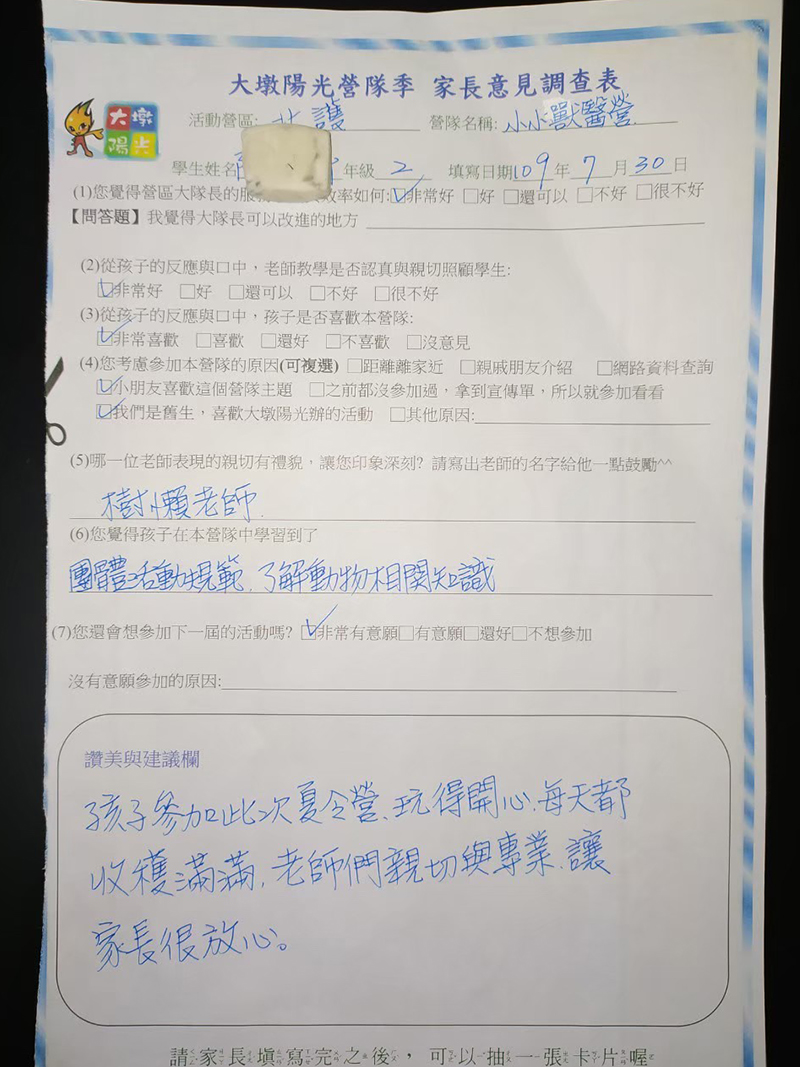 大墩陽光營隊季 家長意見調查表
大墩
陽光
活動營區: 北護 營隊名稱: 小小獸醫營
學生姓名 年級 2 填寫日期109年 7 月 30 日
(1)您覺得營區大隊長的服 效率如何:☑非常好 □好 □還可以 □不好 □很不好
【問答題】我覺得大隊長可以改進的地方
(2)從孩子的反應與口中，老師教學是否認真與親切照顧學生:
☑非常好 □好 □還可以 □不好 □很不好
(3)從孩子的反應與口中，孩子是否喜歡本營隊:
☑非常喜歡 □喜歡 □還好 □不喜歡 □沒意見
(4)您考慮參加本營隊的原因(可複選) □距離離家近 □親戚朋友介紹 □網路資料查詢
☑小朋友喜歡這個營隊主題 □之前都沒參加過，拿到宣傳單，所以就參加看看
☑我們是舊生，喜歡大墩陽光辦的活動 □其他原因:
(5)哪一位老師表現的親切有禮貌，讓您印象深刻? 請寫出老師的名字給他一點鼓勵^^
樹懶老師.
(6)您覺得孩子在本營隊中學習到了
團體活動規範、了解動物相關知識
(7)您還會想參加下一屆的活動嗎? ☑非常有意願□有意願□還好□不想參加
沒有意願參加的原因:
讚美與建議欄
孩子參加此次夏令營、玩得開心、每天都
收穫滿滿，老師們親切與專業、讓
家長很放心。
請家長填寫完之後，可以抽一張卡片喔